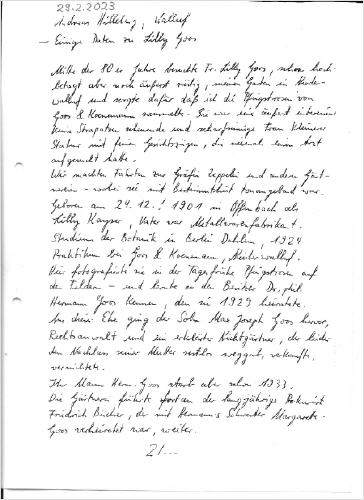 29.2.2023
Andreas Hülsberg, Walluf
– Einige Daten zu Lilly Goos
Mitte der 80er Jahre besuchte Fr. Lilly Goos, schon hoch
betagt aber noch äußerst rüstig, meinen Garten in Nieder-
walluf und sorgte dafür daß ich die Pfingstrosen von
Goos & Koenemann sammelte. Sie war eine äußerst
keine Strapazen scheuende und scharfsinnige Frau kleinerer
Statur mit feinen Gesichtszügen, die niemals einen Arzt
aufgesucht hatte.
Wir machten Fahrten zur Gräfin Zeppelin und anderen Gärt-
nereien – wobei sie mit Bestimmtheit tonangebend war.
Geboren am 24.12.! 1901 in Offenbach als
Lilly Kayser, Vater war Metallwarenfabrikant.
Studium der Botanik in Berlin Dahlem, 1924
Praktikum bei Goos & Koenemann, Niederwalluf.
Hier fotografierte sie in der Tagesfrühe Pfingstrosen auf
den Feldern – und lernte so den Besitzer Dr. phil.
Hermann Goos kennen, den sie 1929 heiratete.
Aus dieser Ehe ging der Sohn Max Joseph Goos hervor,
Rechtsanwalt und ein erklärter Nichtgärtner, der leider
den Nachlass seiner Mutter restlos weggab, verkaufte,
vernichtete.
Ihr Mann Herm. Goos starb aber schon 1933.
Die Gärtnerei führte fortan der langjährige Prokurist
Friedrich Bücher, der mit Hermanns Schwester Margarete
Goos verheiratet war, weiter.